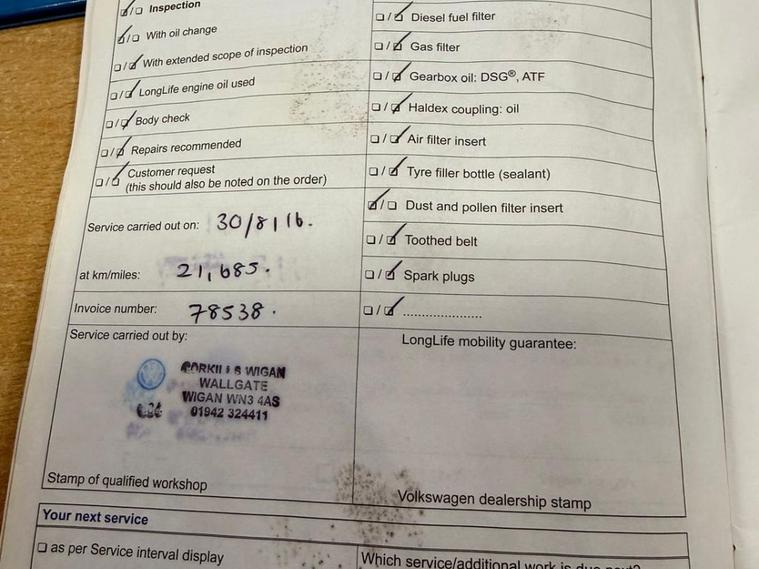 ☑/☐ Inspection
☑/☐ With oil change
☐/☑ With extended scope of inspection
☐/☑ LongLife engine oil used
☐/☑ Body check
☐/☑ Repairs recommended
☐/☑ Customer request
(this should also be noted on the order)
Service carried out on: 30/8/16.
at km/miles: 21,685.
Invoice number: 78538.
Service carried out by:
CORKILLS WIGAN
WALLGATE
WIGAN WN3 4AS
01942 324411
Stamp of qualified workshop
☐/☑ Diesel fuel filter
☐/☑ Gas filter
☐/☑ Gearbox oil: DSG®, ATF
☐/☑ Haldex coupling: oil
☐/☑ Air filter insert
☐/☑ Tyre filler bottle (sealant)
☑/☐ Dust and pollen filter insert
☐/☑ Toothed belt
☐/☑ Spark plugs
☐/☑ ......................
LongLife mobility guarantee:
Volkswagen dealership stamp
Your next service
☐ as per Service interval display
Which service/additional work is due next?